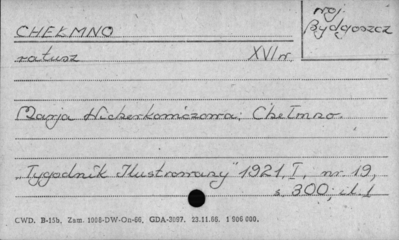 CHEŁMNO
woj.
Bydgoszcz
ratusz XVI w.
Marja Wicherkiewiczowa: Chełmno.
„Tygodnik Ilustrowany" 1921, I, nr. 19,
s. 300; il. 1
CWD. B-15b, Zam. 1008-DW-Ou-66, GDA-3087. 23.11.66. 1 000 000.